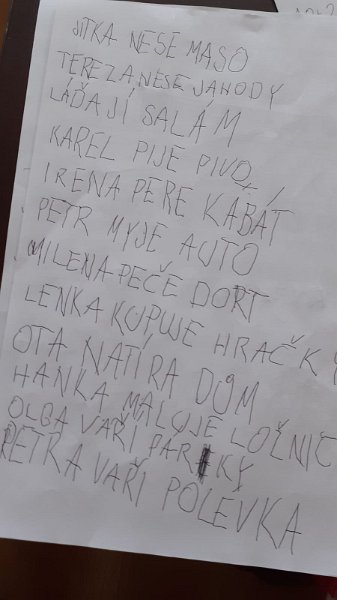 JITKA NESE MASO
TEREZA NESE JAHODY
LÁĎA JÍ SALÁM
KAREL PIJE PIVO
IRENA PERE KABÁT
PETR MYJE AUTO
MILENA PEČE DORT
LENKA KUPUJE HRAČKY
OTA NATÍRA DŮM
HANKA MALUJE LOŽNIC
OLGA VAŘI PARKY
PETRA VAŘI POLEVKA